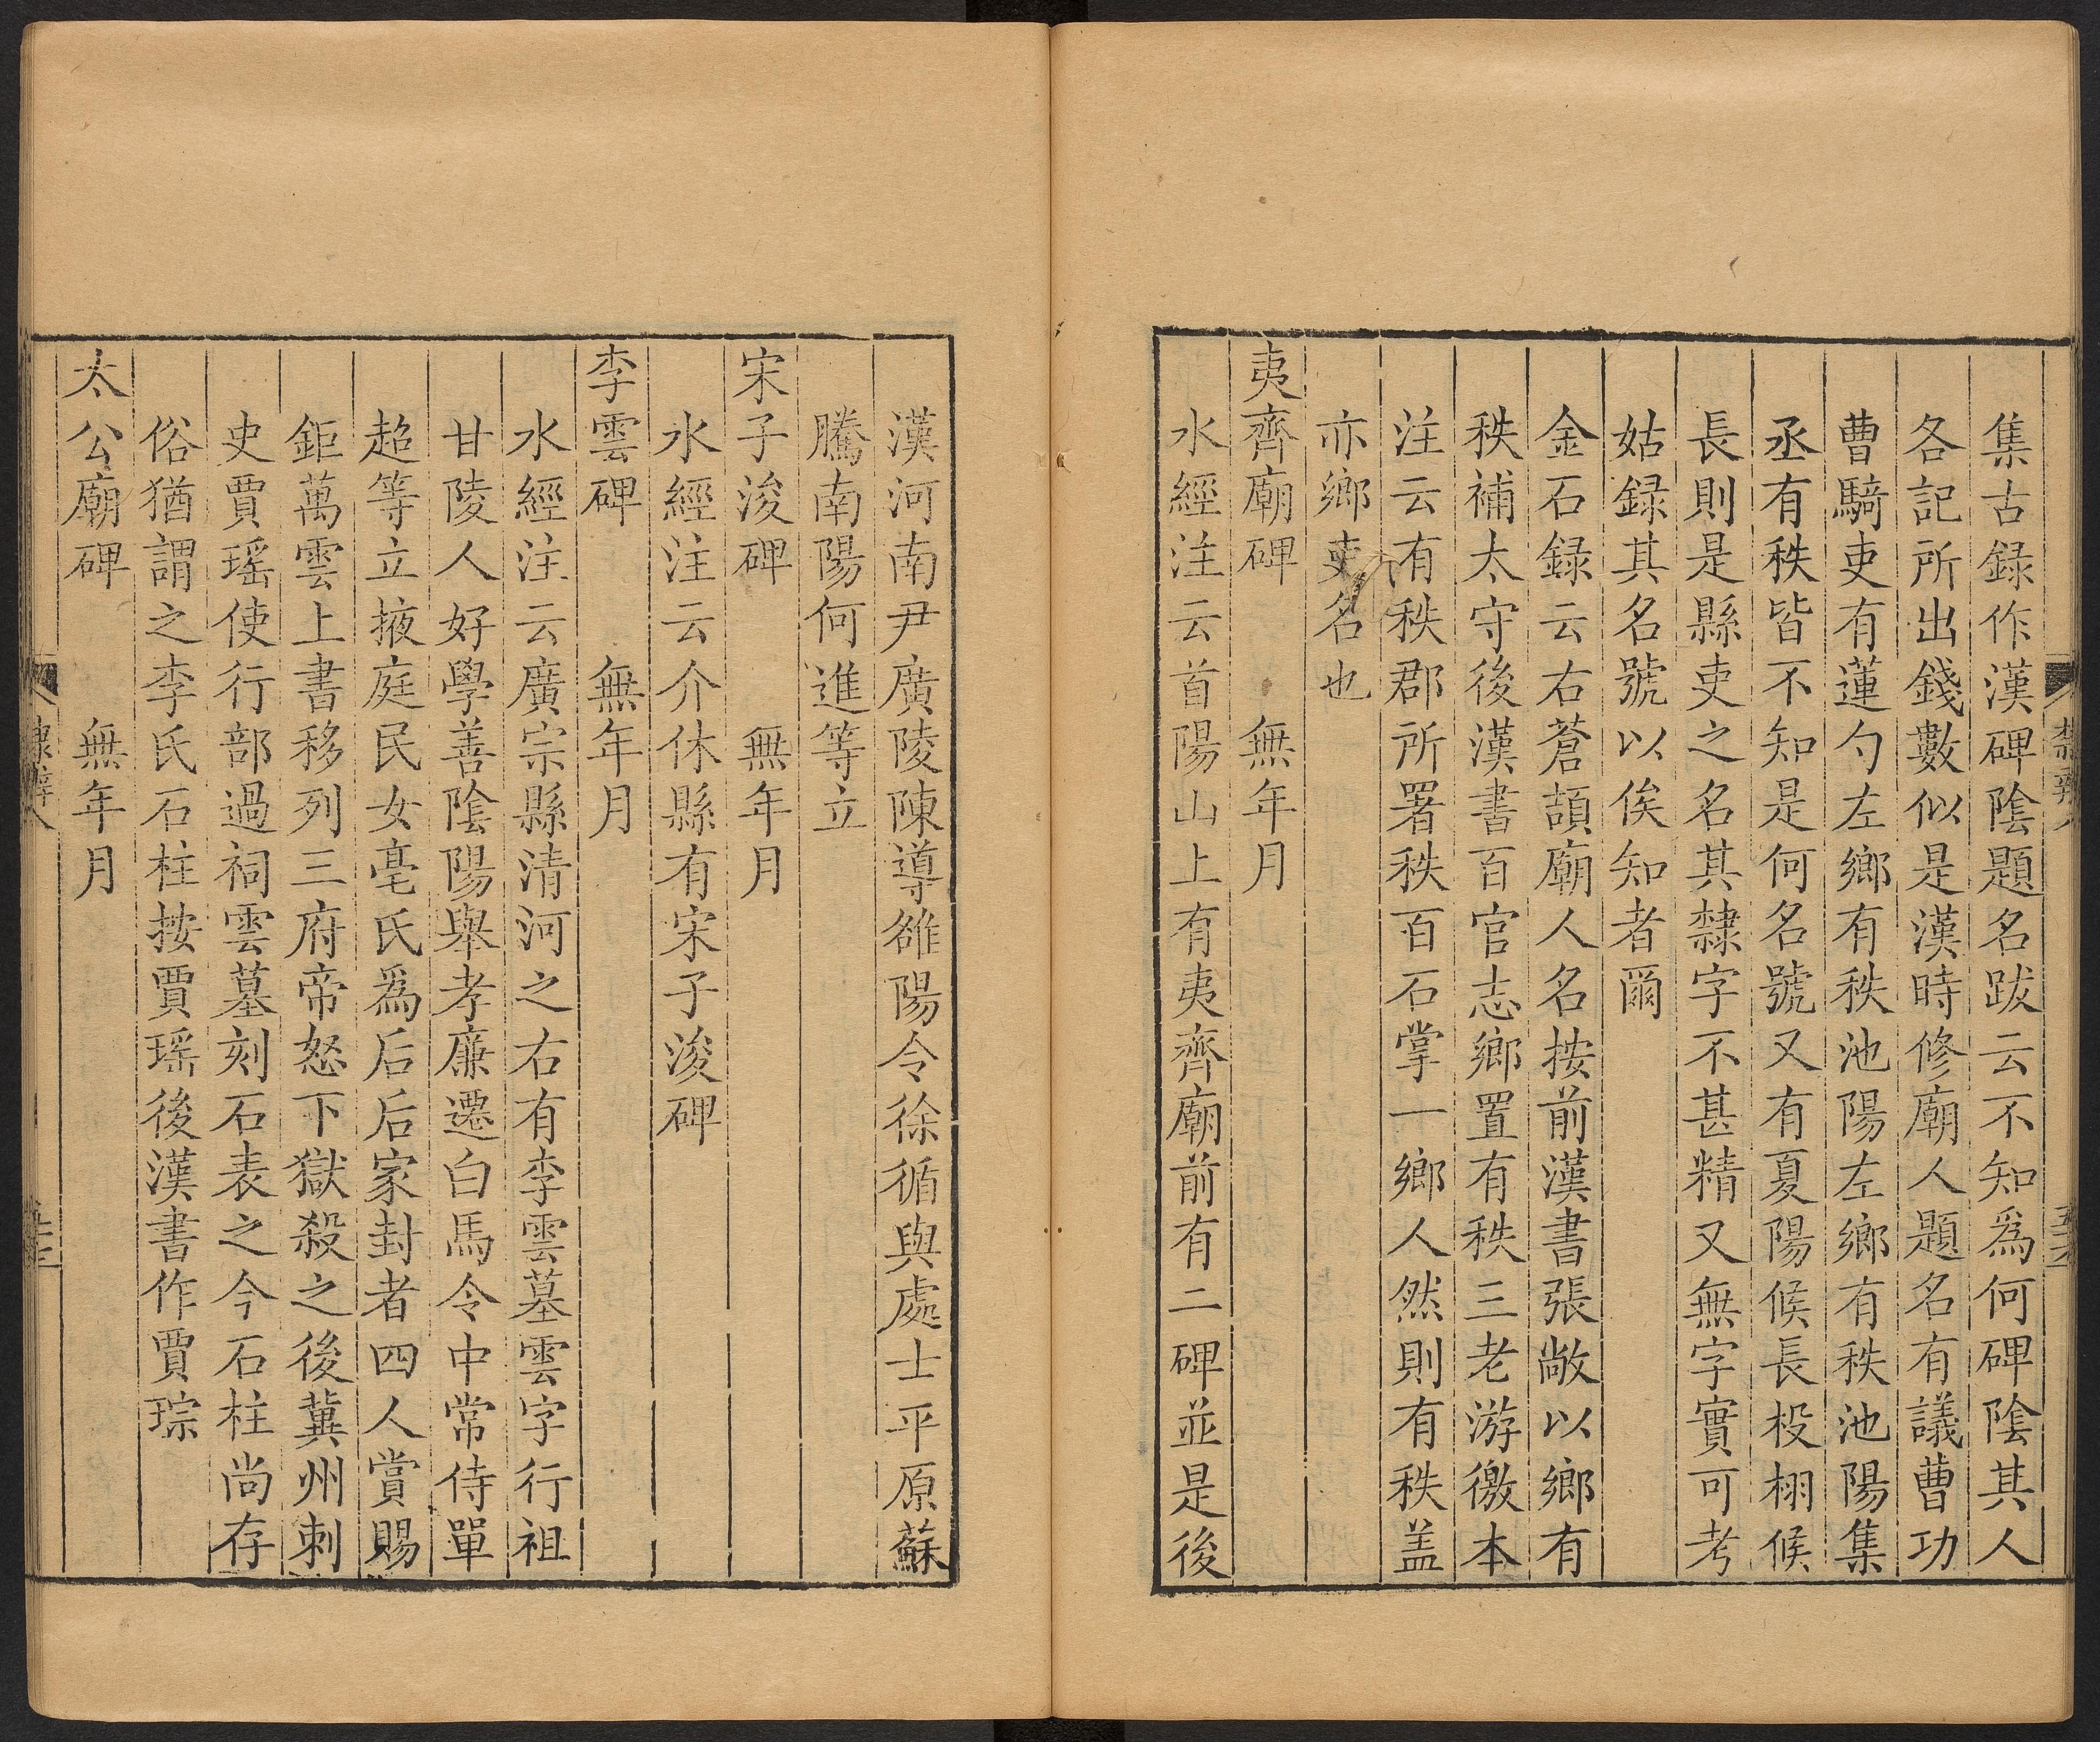 集古録作漢碑陰題名跋云不知爲何碑陰其人
各記所出錢數似是漢時修廟人題名有議曹功
曹騎吏有蓮勺左鄉有秩池陽左鄉有秩池陽集
丞有秩皆不知是何名號又有夏陽候長祋栩候
長則是縣吏之名其隸字不甚精又無字實可考
姑録其名號以俟知者爾
金石録云右蒼頡廟人名按前漢書張敞以鄉有
秩補太守後漢書百官志鄉置有秩三老游徼本
注云有秩郡所署秩百石掌一鄉人然則有秩盖
亦鄉吏名也
夷齊廟碑 無年月
水經注云首陽山上有夷齊廟前有二碑並是後
漢河南尹廣陵陳導雒陽令徐循與處士平原蘇
騰南陽何進等立
宋子浚碑 無年月
水經注云介休縣有宋子浚碑
李雲碑 無年月
水經注云廣宗縣清河之右有李雲墓雲字行祖
甘陵人好學善陰陽舉孝廉遷白馬令中常侍單
超等立掖庭民女亳氏爲后后家封者四人賞賜
鉅萬雲上書移列三府帝怒下獄殺之後冀州刺
史賈瑶使行部過祠雲墓刻石表之今石柱尚存
俗猶謂之李氏石柱按賈瑶後漢書作賈琮
太公廟碑 無年月
隸辨八